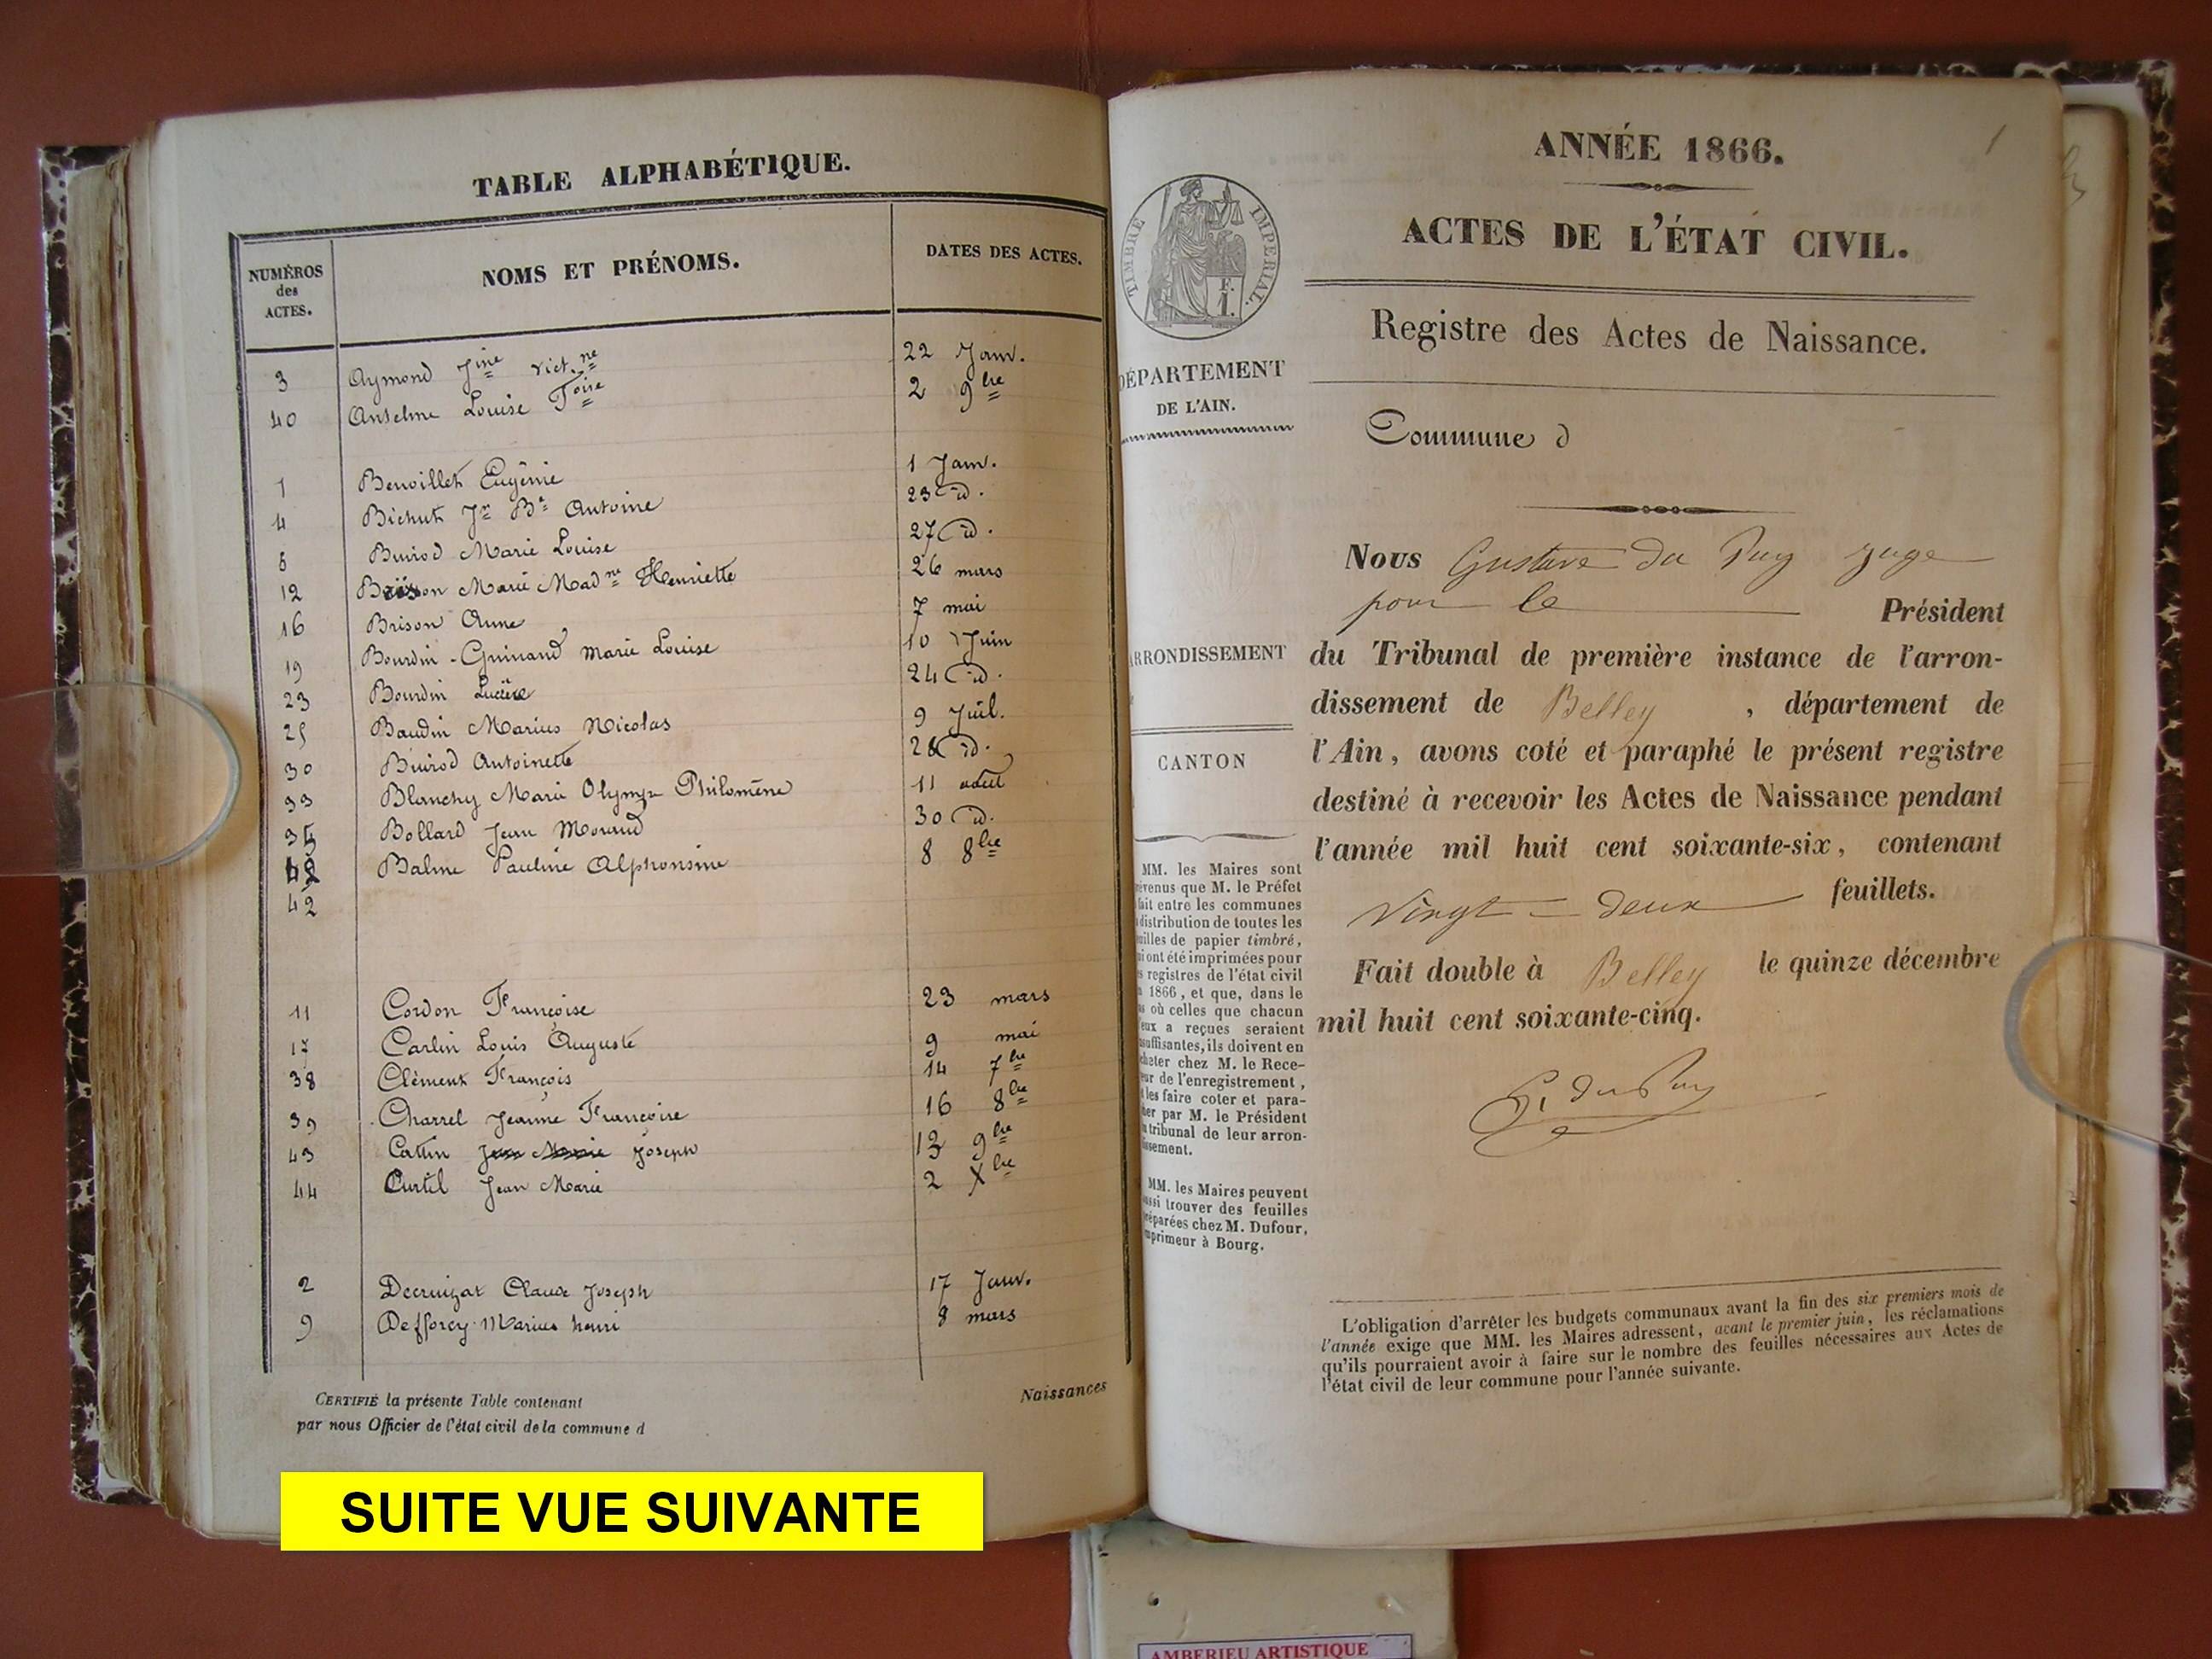 TABLE ALPHABÉTIQUE.
NUMÉROS des ACTES. NOMS ET PRÉNOMS. DATES DES ACTES.
3 Aymond Jine Vict.ne 22 Janv.
40 Anselme Louise Toire 2 9bre
1 Benoillet Eugénie 1 Janv.
4 Bichut Jn Bte Antoine 23 id.
8 Buirod Marie Louise 27 id.
12 Brisson Marie Madne Henriette 26 mars
16 Brison Anne 7 mai
19 Bourdin-Guinand Marie Louise 10 Juin
23 Bourdin 24 id.
25 Baudin Marius Nicolas 9 Juil.
30 Buirod Antoinette 28 id.
33 Blanchy Marie Olympe Philomène 11 août
Bollard Jean Morand 30 id.
Balme Pauline Alphonsine 8 8bre
42
11 Cordon Françoise 23 mars
17 Carlin Louis Auguste 9 mai
38 Clément François 14 7bre
39 Charrel Jeanne Françoise 16 8bre
43 Cattin Jean Marie Joseph 13 9bre
44 Curtil Jean Marie 2 Xbre
2 Decruizat Claude Joseph 17 Janv.
9 Defforey Marius henri 8 mars
CERTIFIÉ la présente Table contenant Naissances
par nous Officier de l'état civil de la commune d
SUITE VUE SUIVANTE
1
ANNÉE 1866.
ACTES DE L'ÉTAT CIVIL.
Registre des Actes de Naissance.
TIMBRE IMPÉRIAL.
F.
1.
DÉPARTEMENT
DE L'AIN.
ARRONDISSEMENT
CANTON
Commune d
Nous Gustave du Puy juge
pour le Président
du Tribunal de première instance de l'arron-
dissement de Belley, département de
l'Ain, avons coté et paraphé le présent registre
destiné à recevoir les Actes de Naissance pendant
l'année mil huit cent soixante-six, contenant
Vingt-deux feuillets.
Fait double à Belley le quinze décembre
mil huit cent soixante-cinq.
G. du Puy
MM. les Maires sont
évenus que M. le Préfet
fait entre les communes
distribution de toutes les
uilles de papier timbré,
ui ont été imprimées pour
s registres de l'état civil
1866, et que, dans le
s où celles que chacun
eux a reçues seraient
suffisantes, ils doivent en
cheter chez M. le Rece-
eur de l'enregistrement,
les faire coter et para-
her par M. le Président
tribunal de leur arron-
issement.
MM. les Maires peuvent
ussi trouver des feuilles
réparées chez M. Dufour,
mprimeur à Bourg.
L'obligation d'arrêter les budgets communaux avant la fin des six premiers mois de
l'année exige que MM. les Maires adressent, avant le premier juin, les réclamations
qu'ils pourraient avoir à faire sur le nombre des feuilles nécessaires aux Actes de
l'état civil de leur commune pour l'année suivante.
AMBERIEU ARTISTIQUE